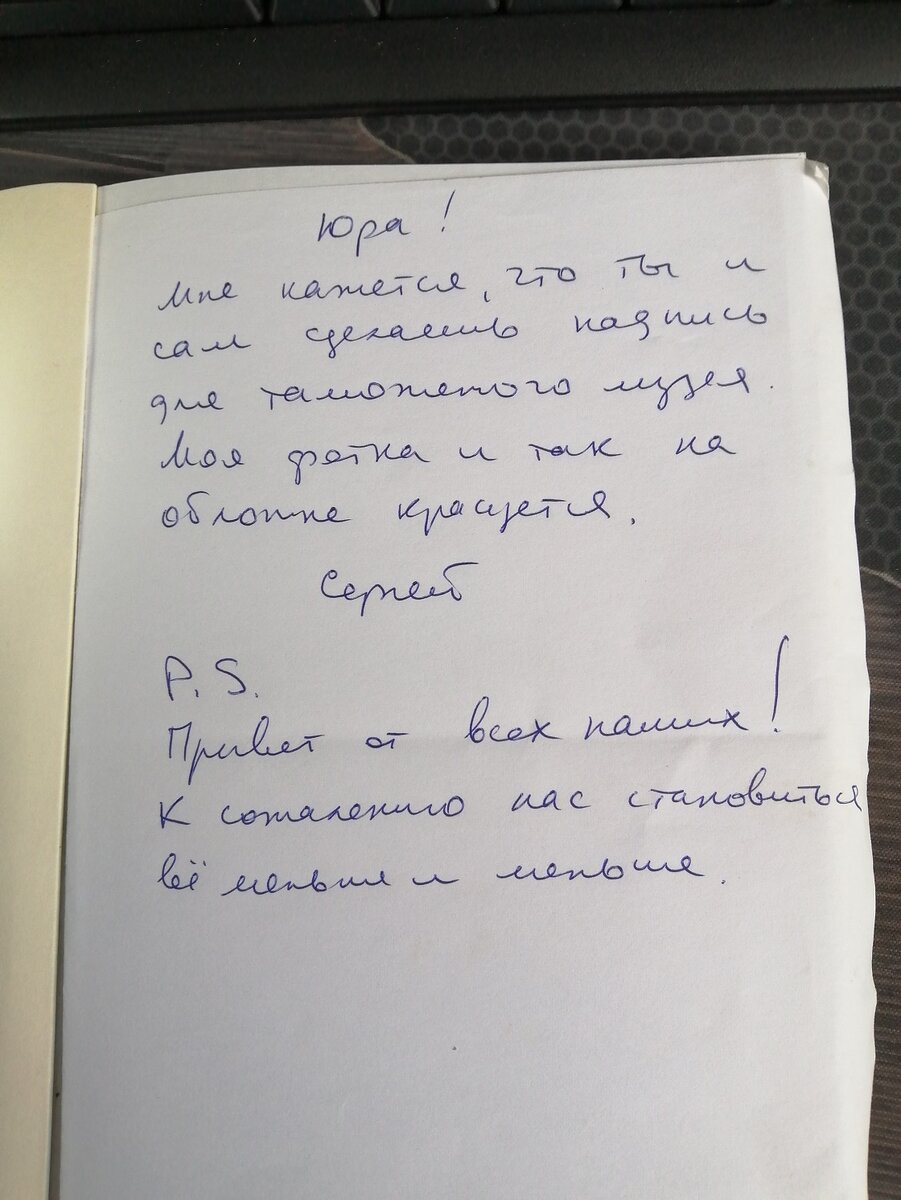 Юра!
Мне кажется, что ты и
сам сделаешь надпись
для таможеного музея.
Моя фотка и так на
обложке красуется.
Сергей
P.S.
Привет от всех наших!
К сожалению нас становиться
всё меньше и меньше.